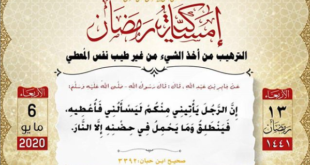 إمساكية رمضان
الترهيب من أخذ الشيء من غير طيب نفس المعطي
الأربعاء
١٣
رمضان
١٤٤١
الأربعاء
6
مايو
2020
عن جابر بن عبد الله، قال: قال رسول الله - صلى الله عليه وسلم:
إِنَّ الرَّجُلَ يَأْتِينِي مِنْكُمْ لِيَسْأَلَنِي فَأُعْطِيهِ،
فَيَنْطَلِقُ وَمَا يَحْمِلُ فِي حِضْنِهِ إِلَّا النَّارَ.
صحيح ابن حبان: ٣٣٩٢